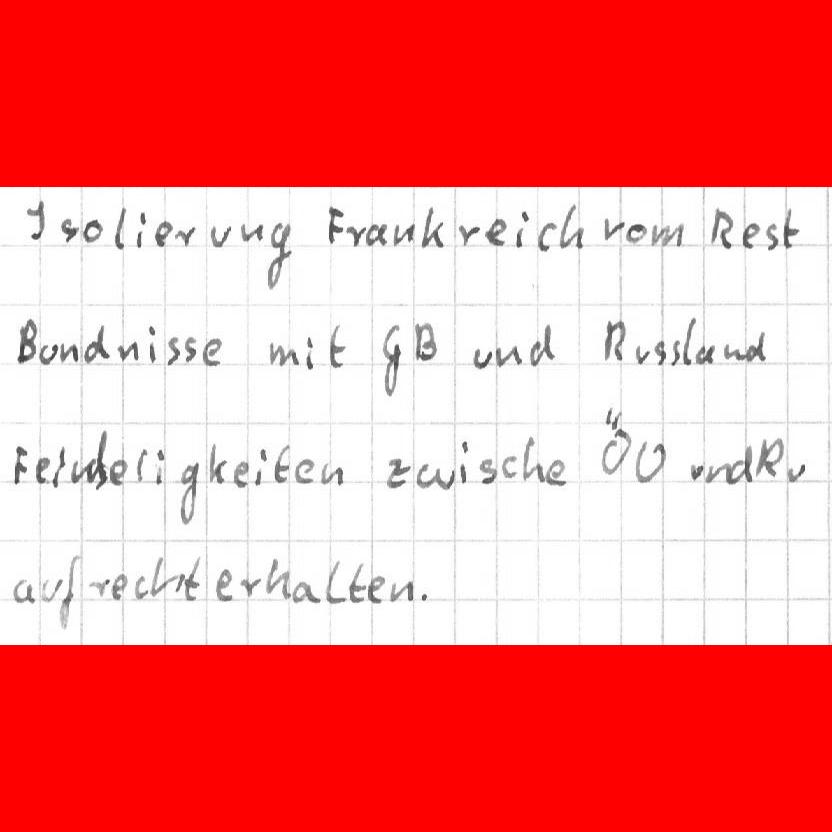 Isolierung Frankreich vom Rest
Bundnisse mit GB und Russland
Feindseligkeiten zwische ÖU und Ru
aufrechterhalten.